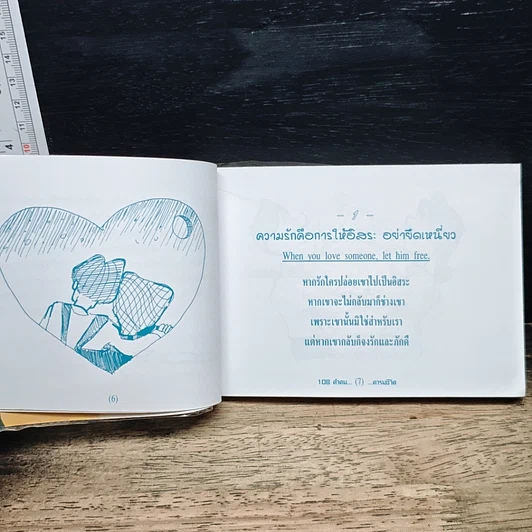 (6)
ความรักคือการให้อิสระ อย่ายึดเหนี่ยว
When you love someone, let him free.
หากรักใครปล่อยเขาไปเป็นอิสระ
หากเขาจะไม่กลับมาก็ช่างเขา
เพราะเขานั้นมิใช่สำหรับเรา
แต่หากเขากลับก็จงรักและภักดี
108 คำคม... (7) ...คารมชีวิต